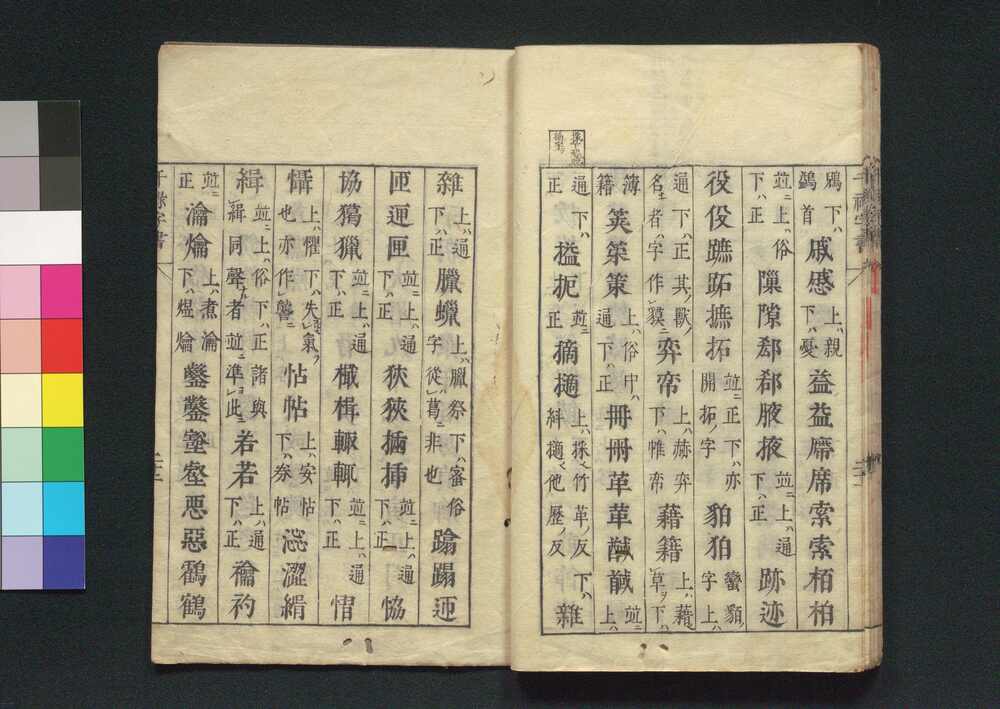 鴟下ハ鷁首戚慼上ハ親下ハ憂益益廗席索索栢柏
並ニ上ハ俗下ハ正隟隙郄郤腋掖並ニ上ハ通下ハ正跡迹
役伇蹠跖摭拓並ニ正下ハ亦開拓ノ字貃狛蠻貊ノ字上ハ
通下ハ正其ノ獸ノ名ナル者ハ字作貘ニ弈帟上ハ赫弈下ハ帷帟藉籍上ハ藉草ヲ下ハ
簿籍筴筞策上ハ俗中ハ通下ハ正冊冊革革馘並ニ上ハ
通下ハ正搤扼並ニ正摘擿上ハ採下ハ他歷ノ反雜
雜上ハ通下ハ正臘蠟上ハ臘祭下ハ蜜俗字從葛ニ非也蹹蹋迊
匝迊匣並ニ上ハ通下ハ正狹狹插插並ニ上ハ通下ハ正恊
協獦獵並ニ上ハ通下ハ正檝楫輙輒並ニ上ハ通下ハ正慴
慴上ハ懼下ハ失氣ヲ也亦作讋ニ怗帖上ハ安怗下ハ券帖澁澀緝
緝並ニ上ハ俗下ハ正諸與緝同聲者並準此ニ若若上ハ通下ハ正禴礿
並ニ正瀹爚上ハ煮瀹下ハ煜爚鑿鑿壑壑悪惡鸖鶴
干祿字書